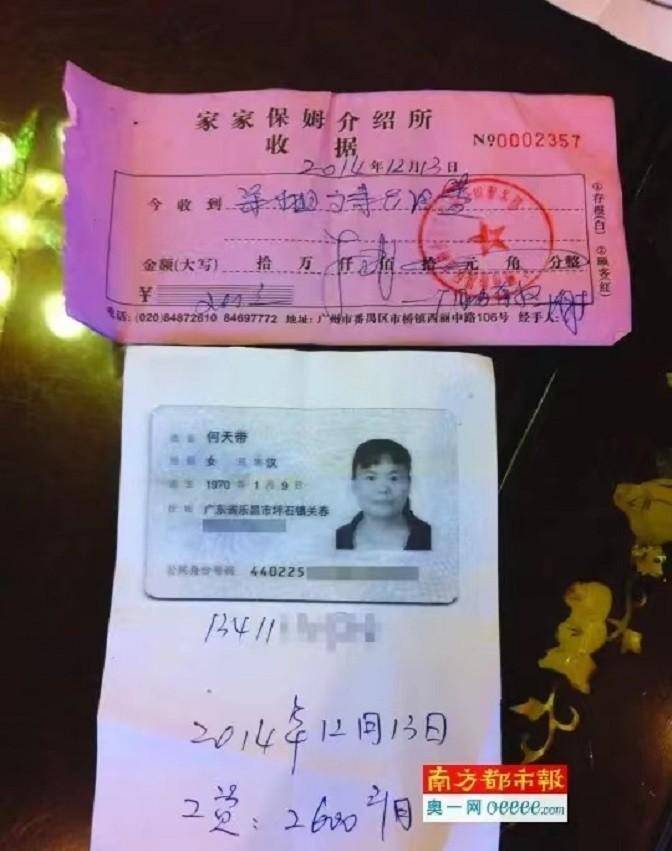 家家保姆介绍所
收据 №0002357
2014年12月13日
今收到
金额(大写) 拾 万 仟 佰 拾 元 角 分整
¥
①存根(白) ②顾客(红)
电话: (020)84872610 84697772 地址: 广州市番禺区市桥镇西丽中路106号 经手人:
姓名 何天带
性别 女 民族 汉
出生 1970 年 1 月 9 日
住址 广东省乐昌市坪石镇关春
公民身份号码 440225
13411
2014年12月13日
工资: 2600元/月
南方都市報
奥一网 oeeee.com